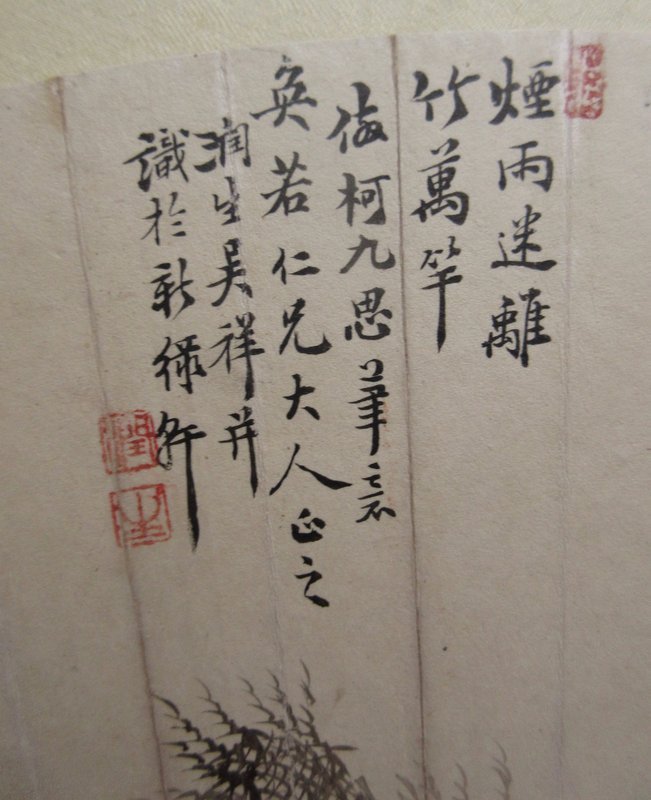 煙雨迷離
竹萬竿
倣柯九思筆意
奐若仁兄大人正之
潤生吳祥并
識於新綠軒
潤
生